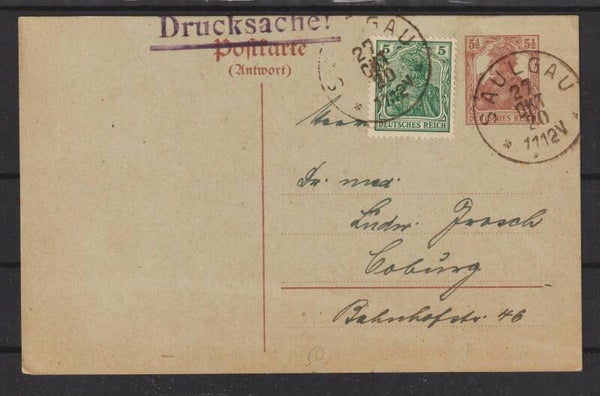 Drucksache!
Postkarte
(Antwort)
SAULGAU
27
OKT
20
1112V
5 5
DEUTSCHES REICH
5½ 5½
DEUTSCHES REICH
SAULGAU
27
OKT
20
1112V
Herrn
Dr. med.
Ludw. Frosch
Coburg
Bahnhofstr. 46